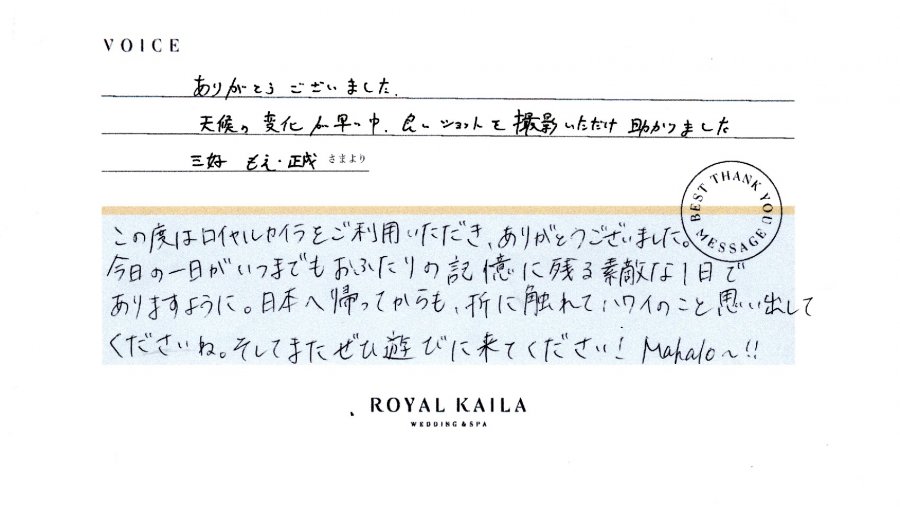 VOICE
ありがとうございました.
天候の変化が早い中、良いショットを撮影いただけ助かりました
三好 もえ・正成 さまより
BEST THANK YOU MESSAGE
この度はロイヤルカイラをご利用いただき、ありがとうございました。
今日の一日がいつまでもおふたりの記憶に残る素敵な1日で
ありますように。日本へ帰ってからも、折に触れて、ハワイのこと思い出して
くださいね。そしてまたぜひ遊びに来てください! Mahalo~!!
ROYAL KAILA
WEDDING & SPA